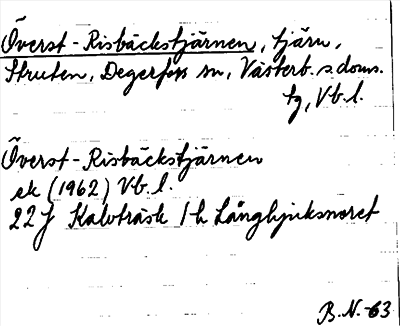 Överst-Risbäckstjärnen, tjärn,
Struten, Degerfors sn, Västerb. s. doms.
tg, Vb. l.
Överst-Risbäckstjärnen
ek (1962) Vb. l.
22 J Kalvträsk 1 h Långbjuksnoret
B.N.-63